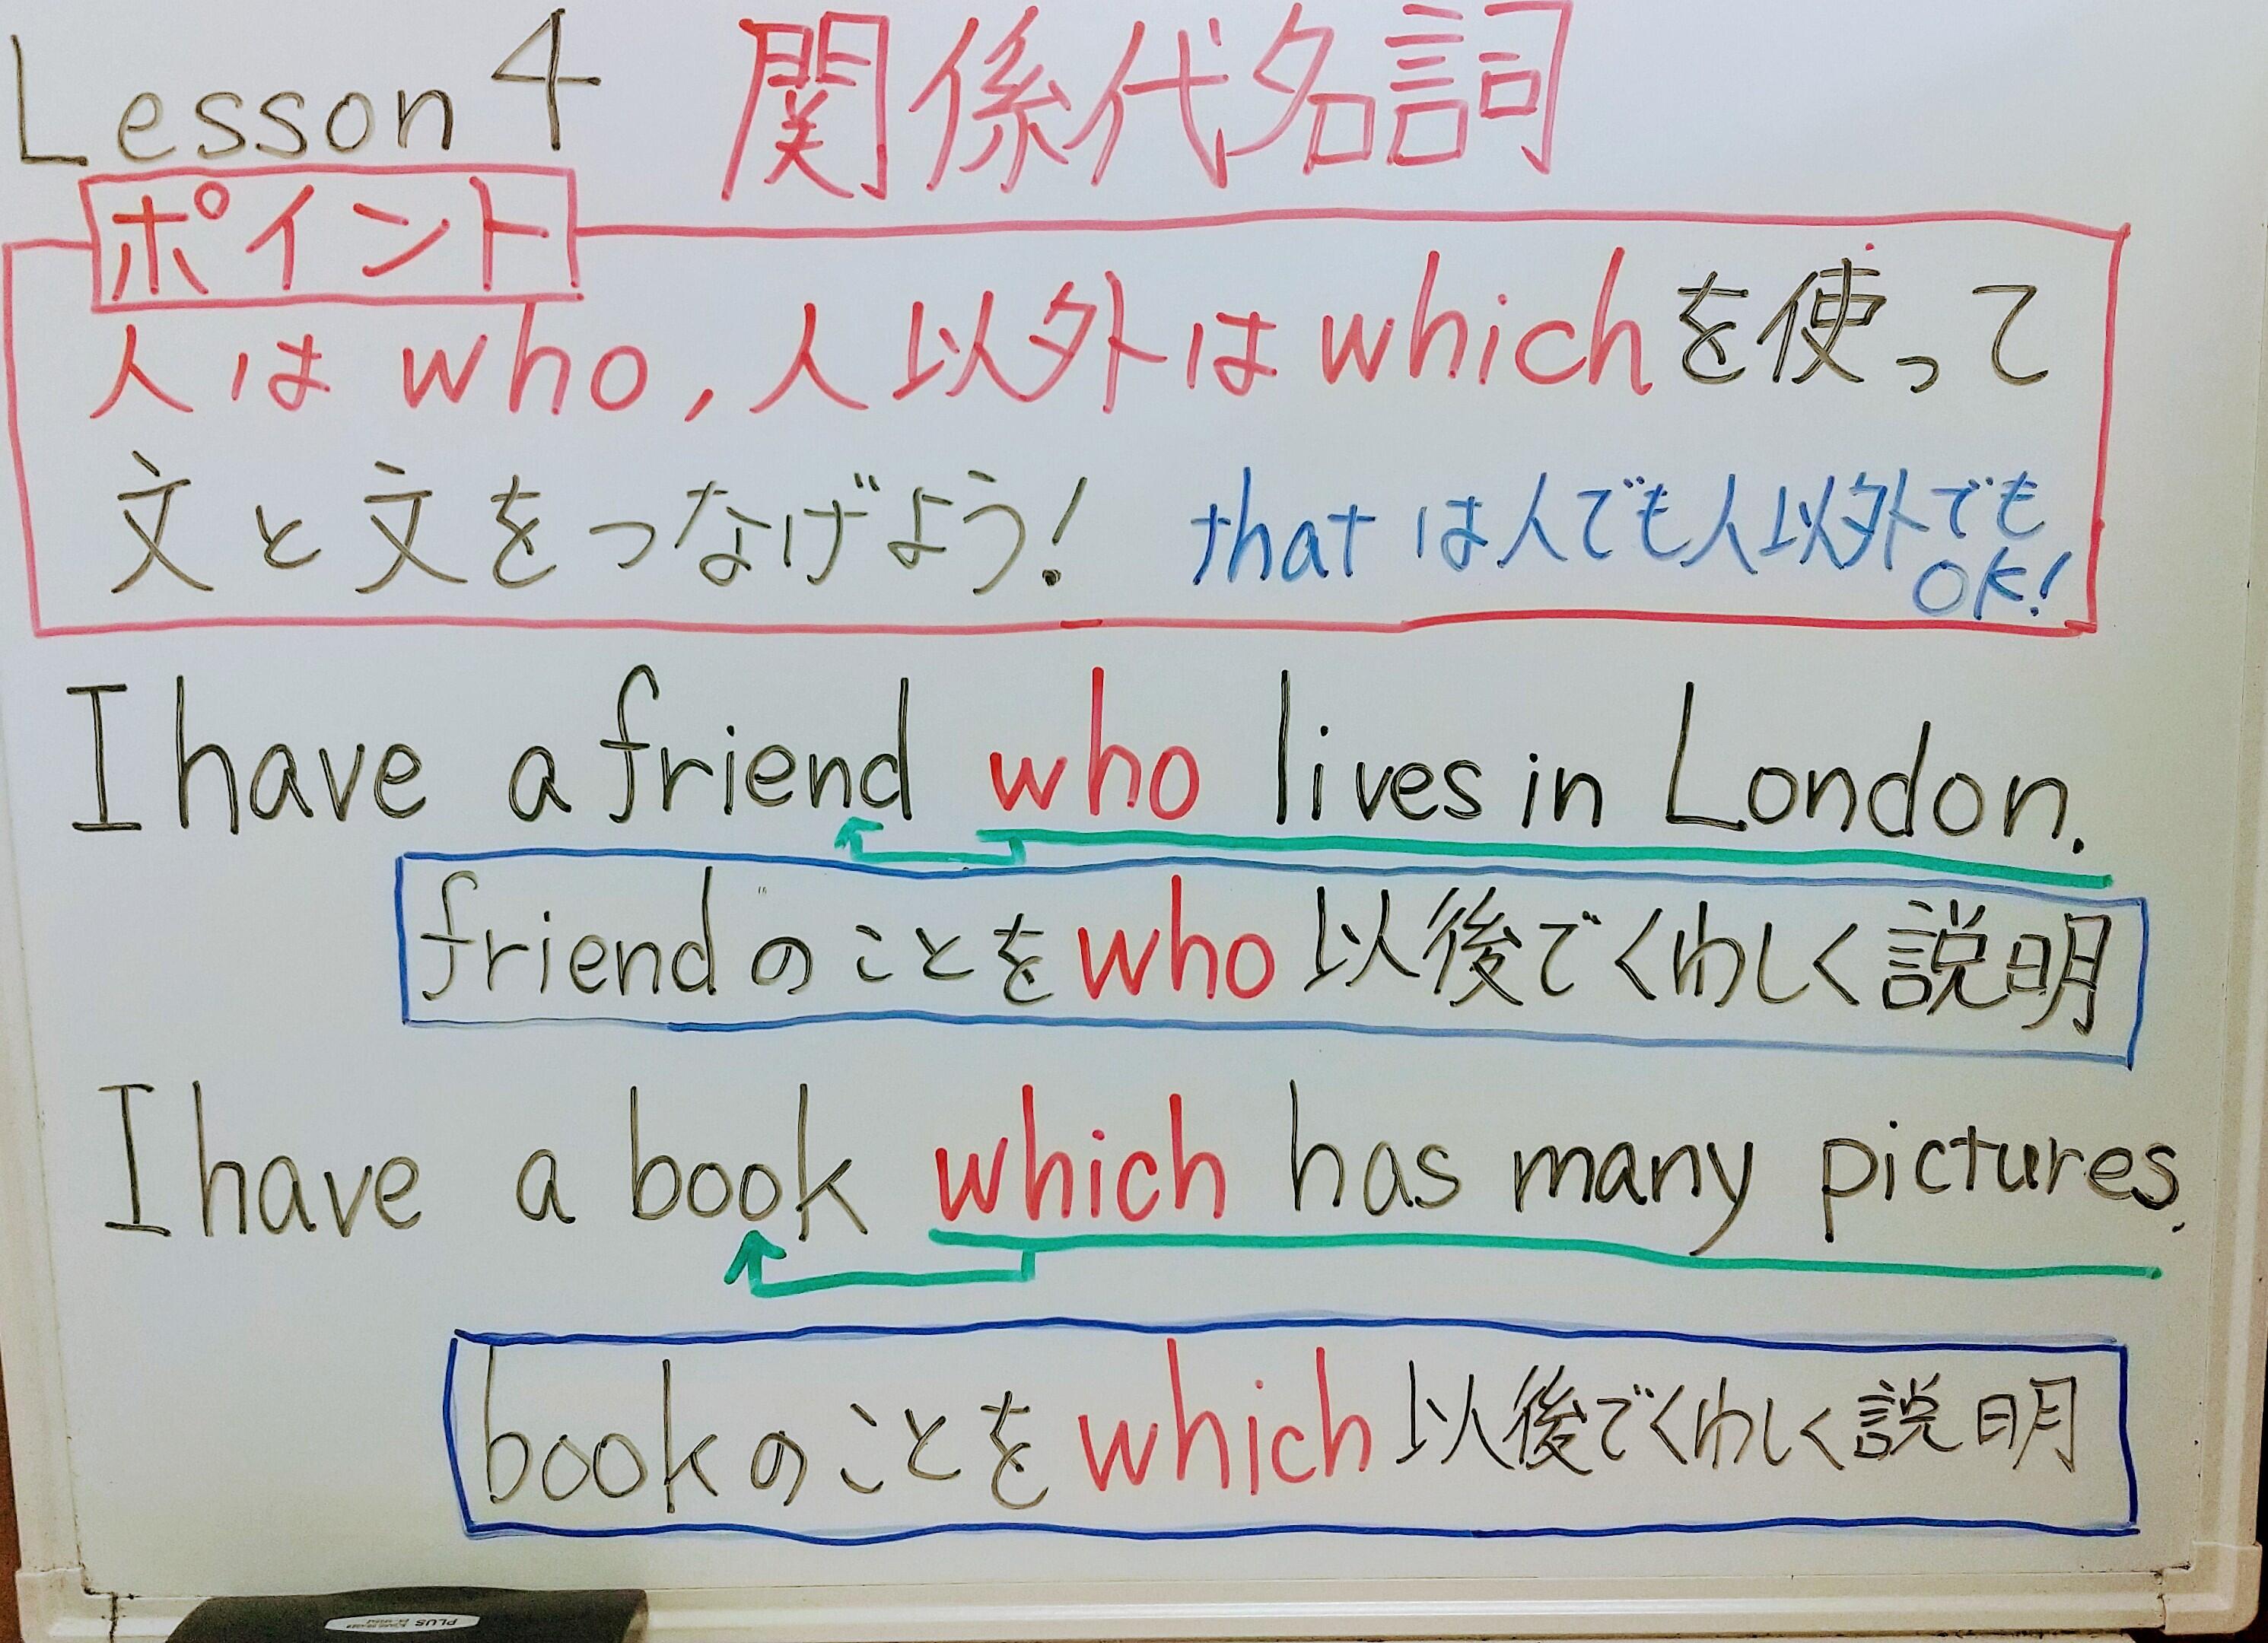 Lesson 4 関係代名詞
ポイント
人は who, 人以外は whichを使って
文と文をつなげよう! that は人でも人以外でも
OK!
I have a friend who lives in London.
friendのことをwho以後でくわしく説明
I have a book which has many pictures.
bookのことをwhich以後でくわしく説明
PLUS